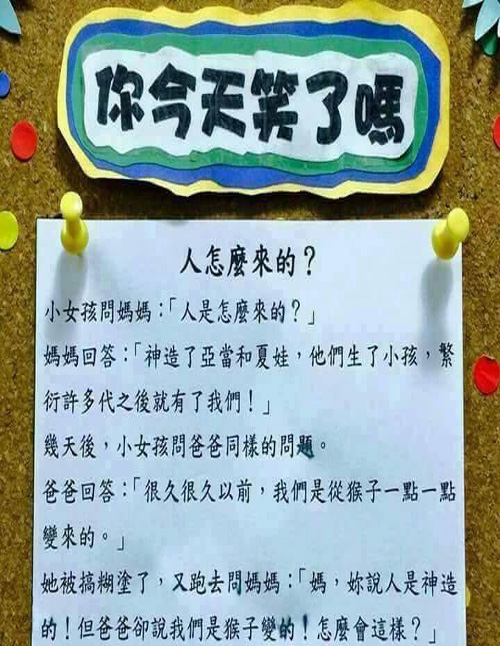 你今天笑了嗎
人怎麼來的？
小女孩問媽媽：「人是怎麼來的？」
媽媽回答：「神造了亞當和夏娃，他們生了小孩，繁
衍許多代之後就有了我們！」
幾天後，小女孩問爸爸同樣的問題。
爸爸回答：「很久很久以前，我們是從猴子一點一點
變來的。」
她被搞糊塗了，又跑去問媽媽：「媽，妳說人是神造
的！但爸爸卻說我們是猴子變的！怎麼會這樣？」